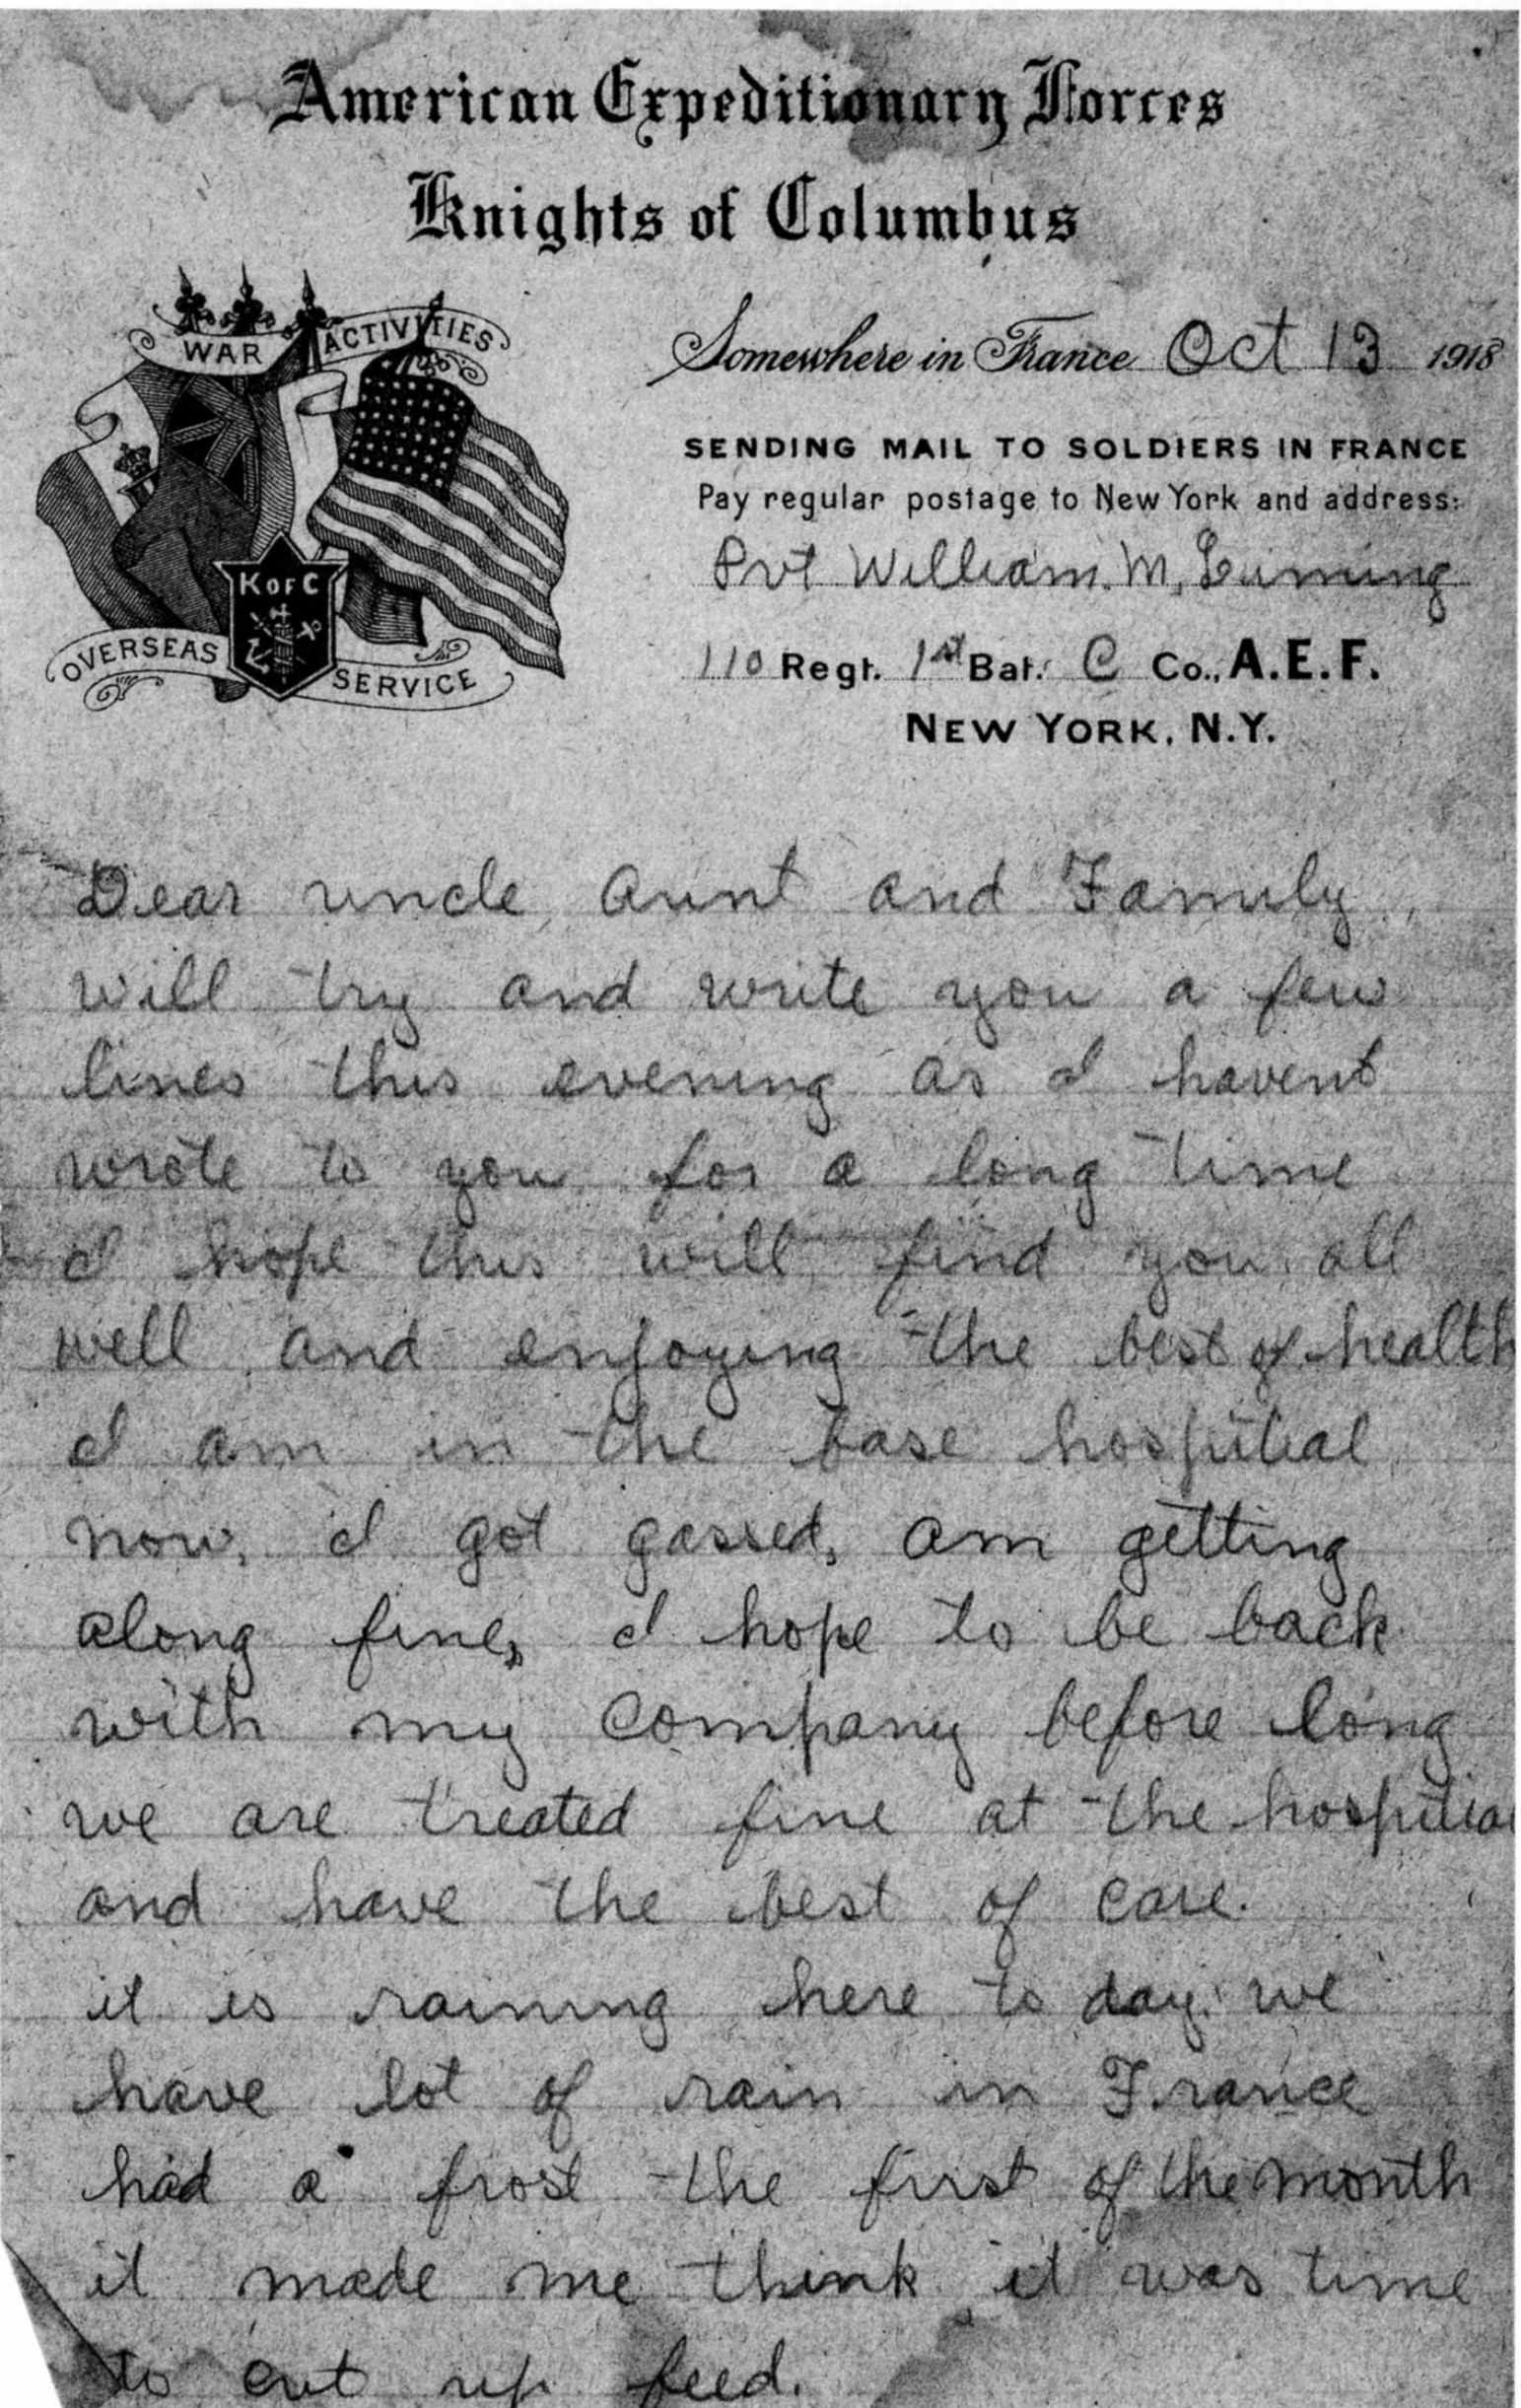 American Expeditionary Forces
Knights of Columbus
WAR ACTIVITIES
K OF C
OVERSEAS SERVICE
Somewhere in France Oct 13 1918
SENDING MAIL TO SOLDIERS IN FRANCE
Pay regular postage to New York and address:
Pvt William. M,
110 Regt. 1st Bat. C Co., A.E.F.
NEW YORK, N.Y.
Dear uncle Aunt and Family,
will try and write you a few
lines this evening as I havent
wrote to you for a long time
I hope this will find you all
well and enjoying the best of health
I am in the base hospitial
now, I got gassed, am getting
along fine, I hope to be back
with my company before long
we are treated fine at the hospitia
and have the best of care.
it is raining here to day. we
have lot of rain in France
had a frost the first of the month
it made me think it was time
to cut up feed.